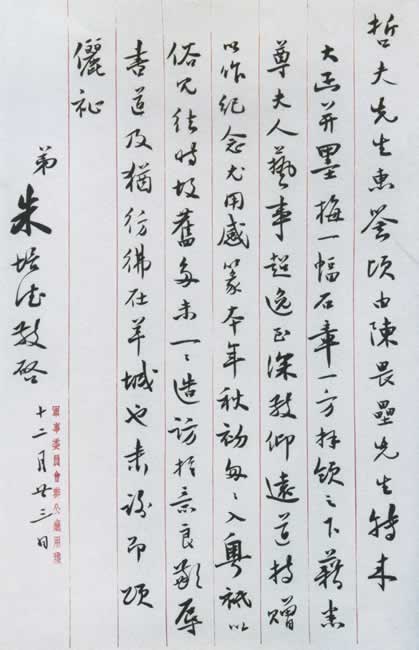 哲夫先生惠詧頃由陳畏壘先生轉来
大函并墨梅一幅石章一方拜領之下藉悉
尊夫人藝事超逸至深敬仰遠道持贈
以作紀念尤用感篆本年秋初匆匆入粤祗以
俗冗 時故舊多未一一造訪於意良歉辱
書道及猶彷彿在羊城也耑 即頌
儷祉
弟朱培德敬啓
十二月廿三日
軍事委員會辦公廳用牋